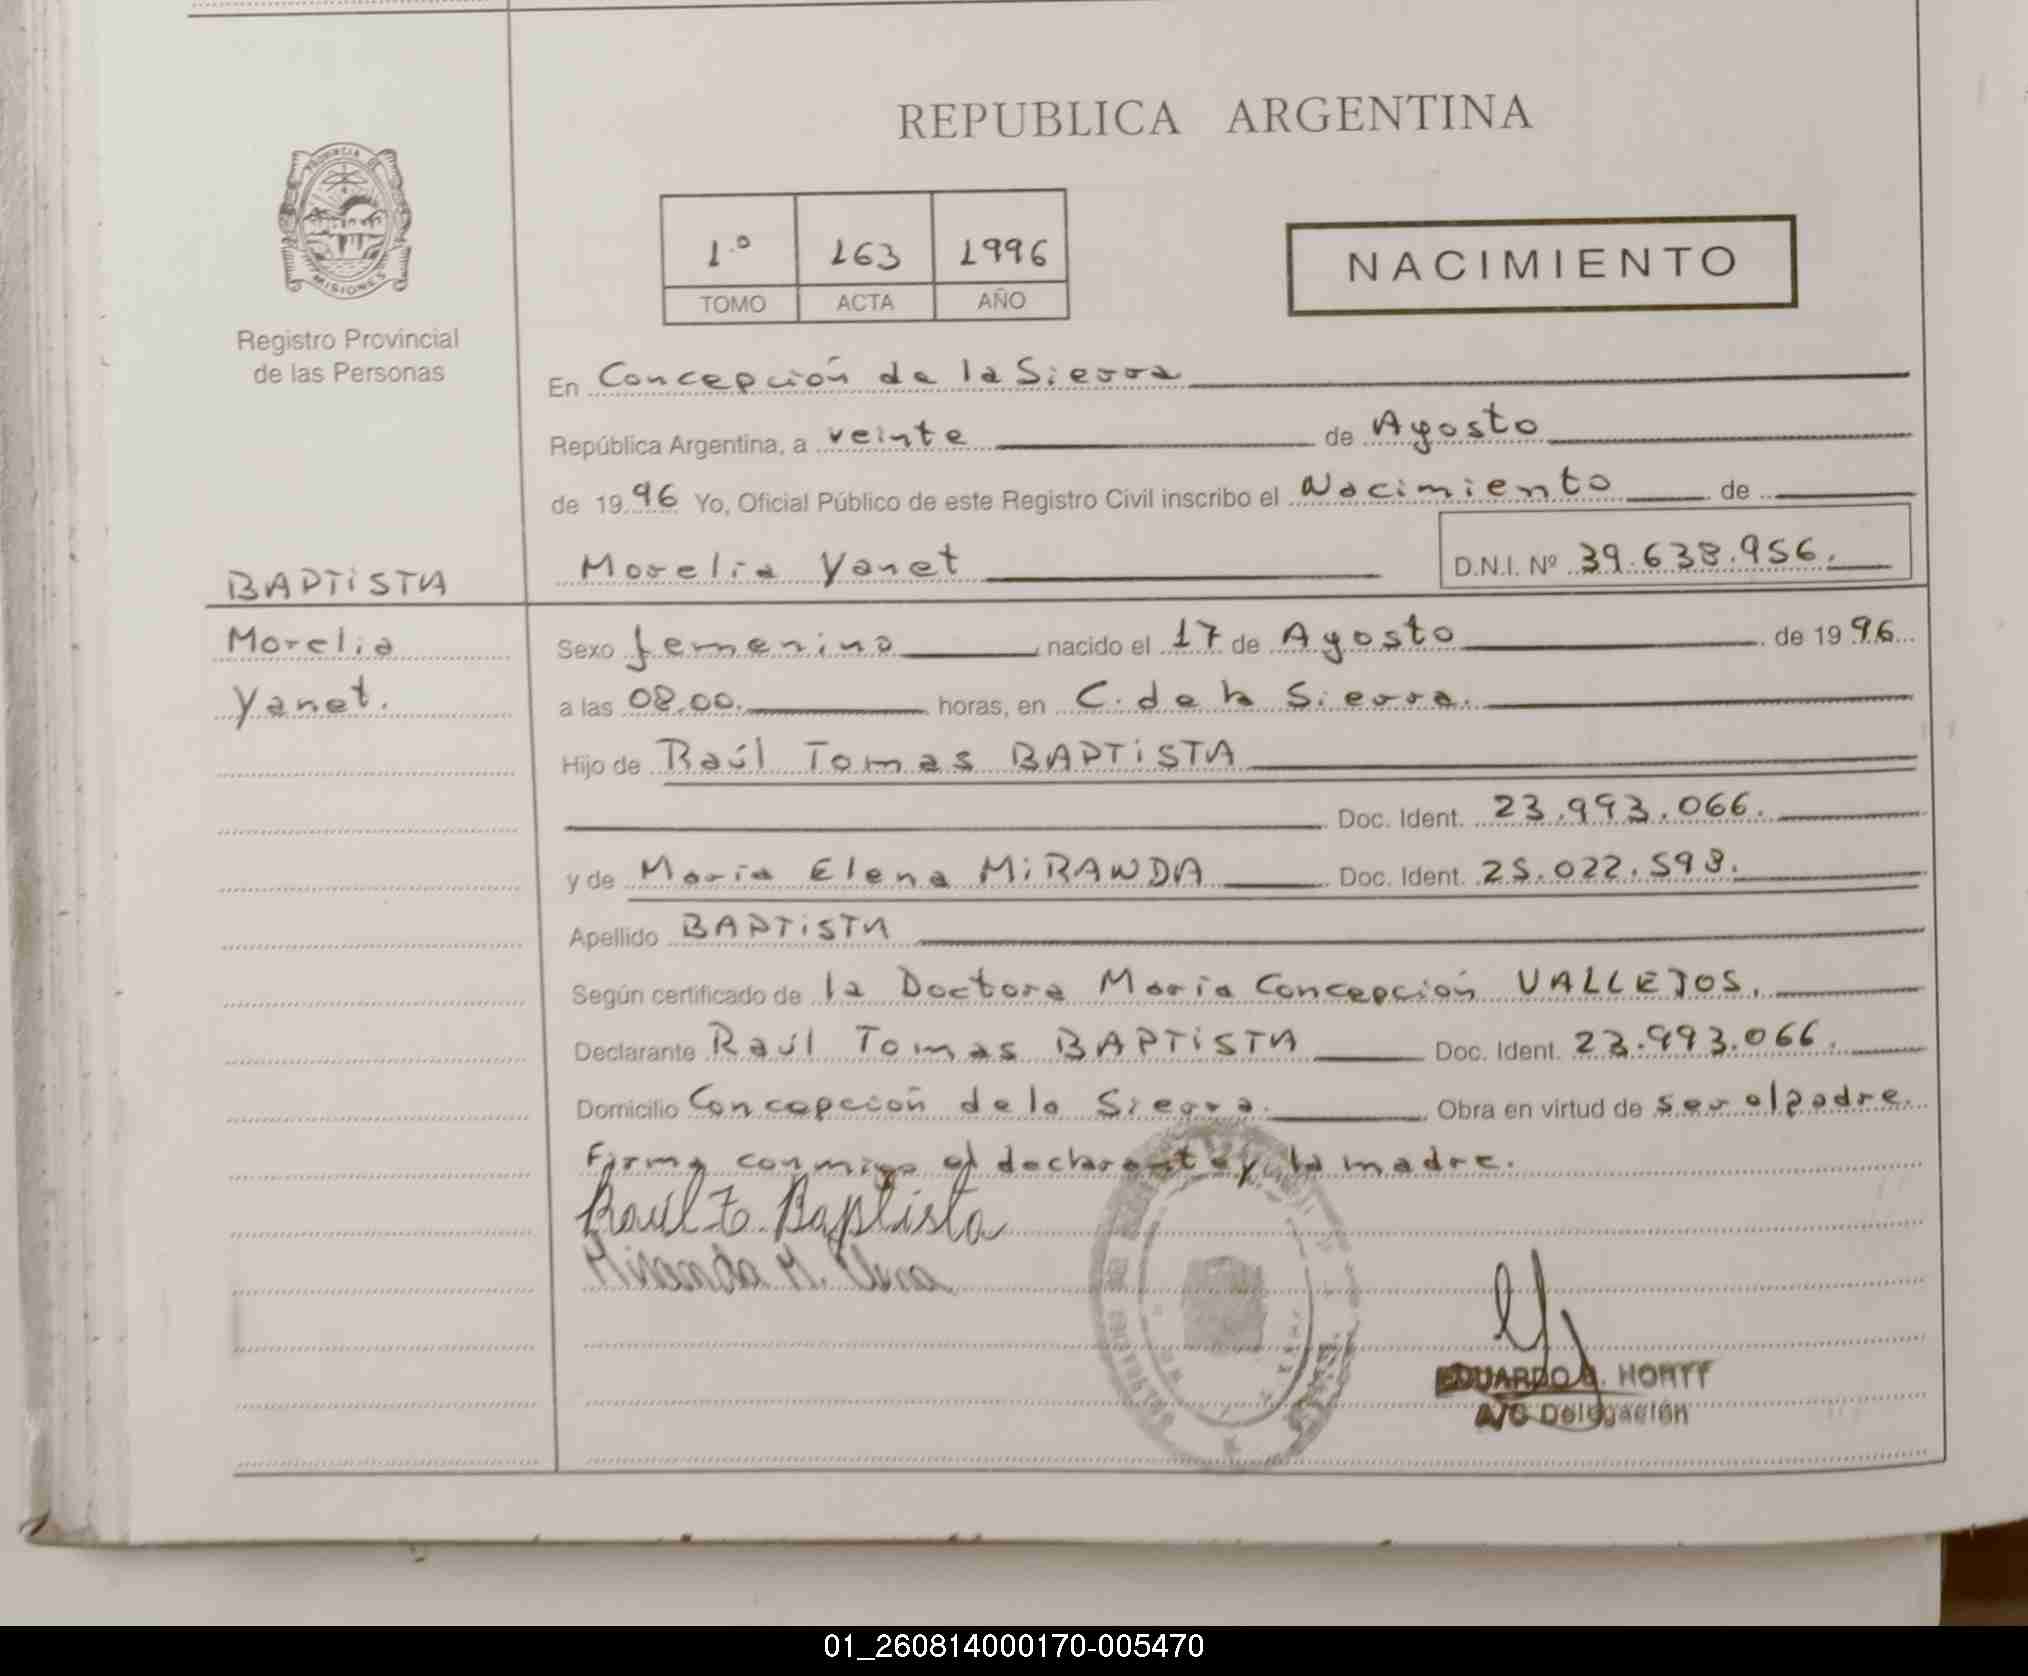 REPUBLICA ARGENTINA
PROVINCIA DE
MISIONES
Registro Provincial
de las Personas
1º 163 1996
TOMO ACTA AÑO
NACIMIENTO
En Concepción de la Sierra
República Argentina, a veinte de Agosto
de 19 96 Yo, Oficial Público de este Registro Civil inscribo el Nacimiento de
Morelia Yanet D.N.I. Nº 39.638.956.
BAPTiSTA
Morelia
Yanet.
Sexo femenino nacido el 17 de Agosto de 19 96
a las 08.00. horas, en C. de la Sierra.
Hijo de Raúl Tomas BAPTiSTA
Doc. Ident. 23.993.066.
y de Maria Elena MiRANDA Doc. Ident. 25.022.598.
Apellido BAPTiSTA
Según certificado de la Doctora Maria Concepción VALLEJOS.
Declarante Raúl Tomas BAPTiSTA Doc. Ident. 23.993.066.
Domicilio Concepción de la Sierra. Obra en virtud de ser el padre.
Firma conmigo el declarante y la madre.
Raúl T. Baptista
Miranda M. Elena
EDUARDO HORTT
A/C Delegación
01_260814000170-005470